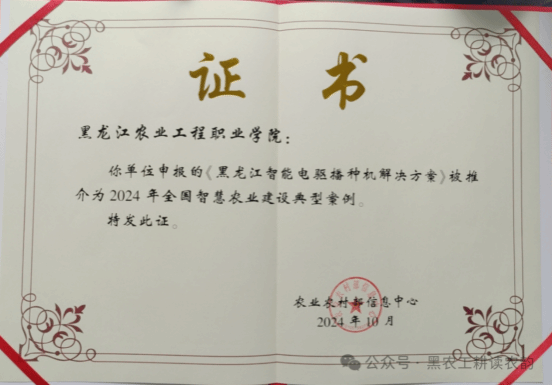 证 书
黑龙江农业工程职业学院：
你单位申报的《黑龙江智能电驱播种机解决方案》被推
介为2024年全国智慧农业建设典型案例。
特发此证。
农业农村部信息中心
2024年10月
公众号·黑农工耕读农韵